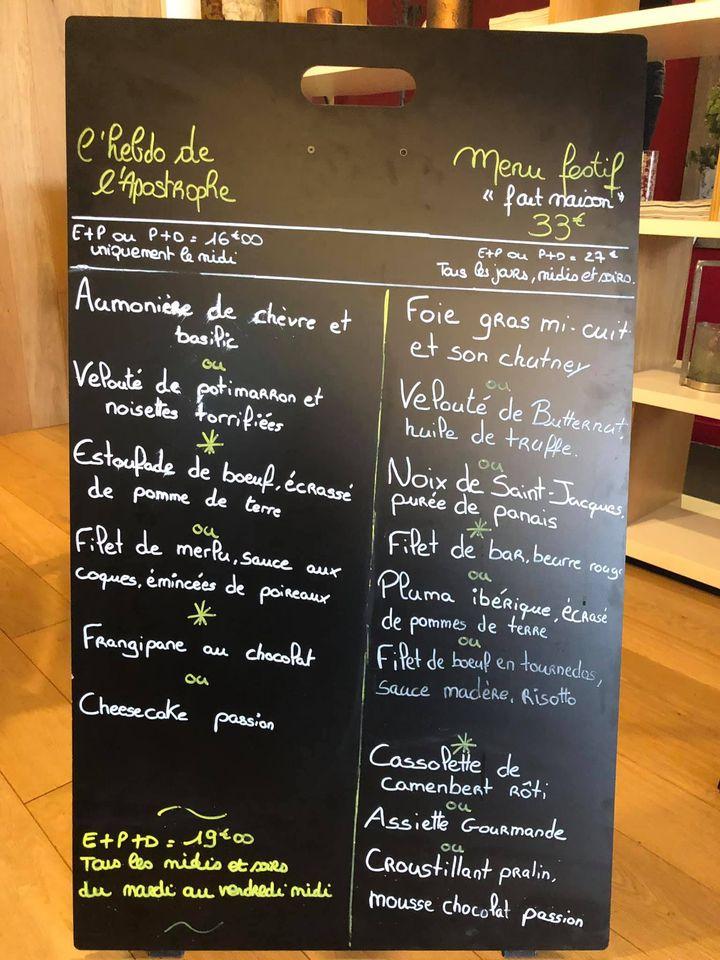 l'hebdo de
l'Apostrophe
E+P ou P+D = 16€00
uniquement le midi
Aumonière de chèvre et
basilic
ou
Velouté de potimarron et
noisettes torrifiées
*
Estoufade de boeuf, écrassé
de pomme de terre
ou
Filet de merlu, sauce aux
coques, émincées de poireaux
*
Frangipane au chocolat
ou
Cheesecake passion
E+P+D = 19€00
Tous les midis et soirs
du mardi au vendredi midi
Menu festif
"fait maison"
33€
E+P ou P+D = 27€
Tous les jours, midis et soirs.
Foie gras mi-cuit
et son chutney
ou
Velouté de Butternut,
huile de truffe.
ou
Noix de Saint-Jacques,
purée de panais
*
Filet de bar, beurre rouge
ou
Pluma ibérique, écrasé
de pommes de terre
ou
Filet de boeuf en tournedos,
sauce madère. Risotto
*
Cassolette de
camenbert rôti
ou
Assiette Gourmande
ou
Croustillant pralin,
mousse chocolat passion